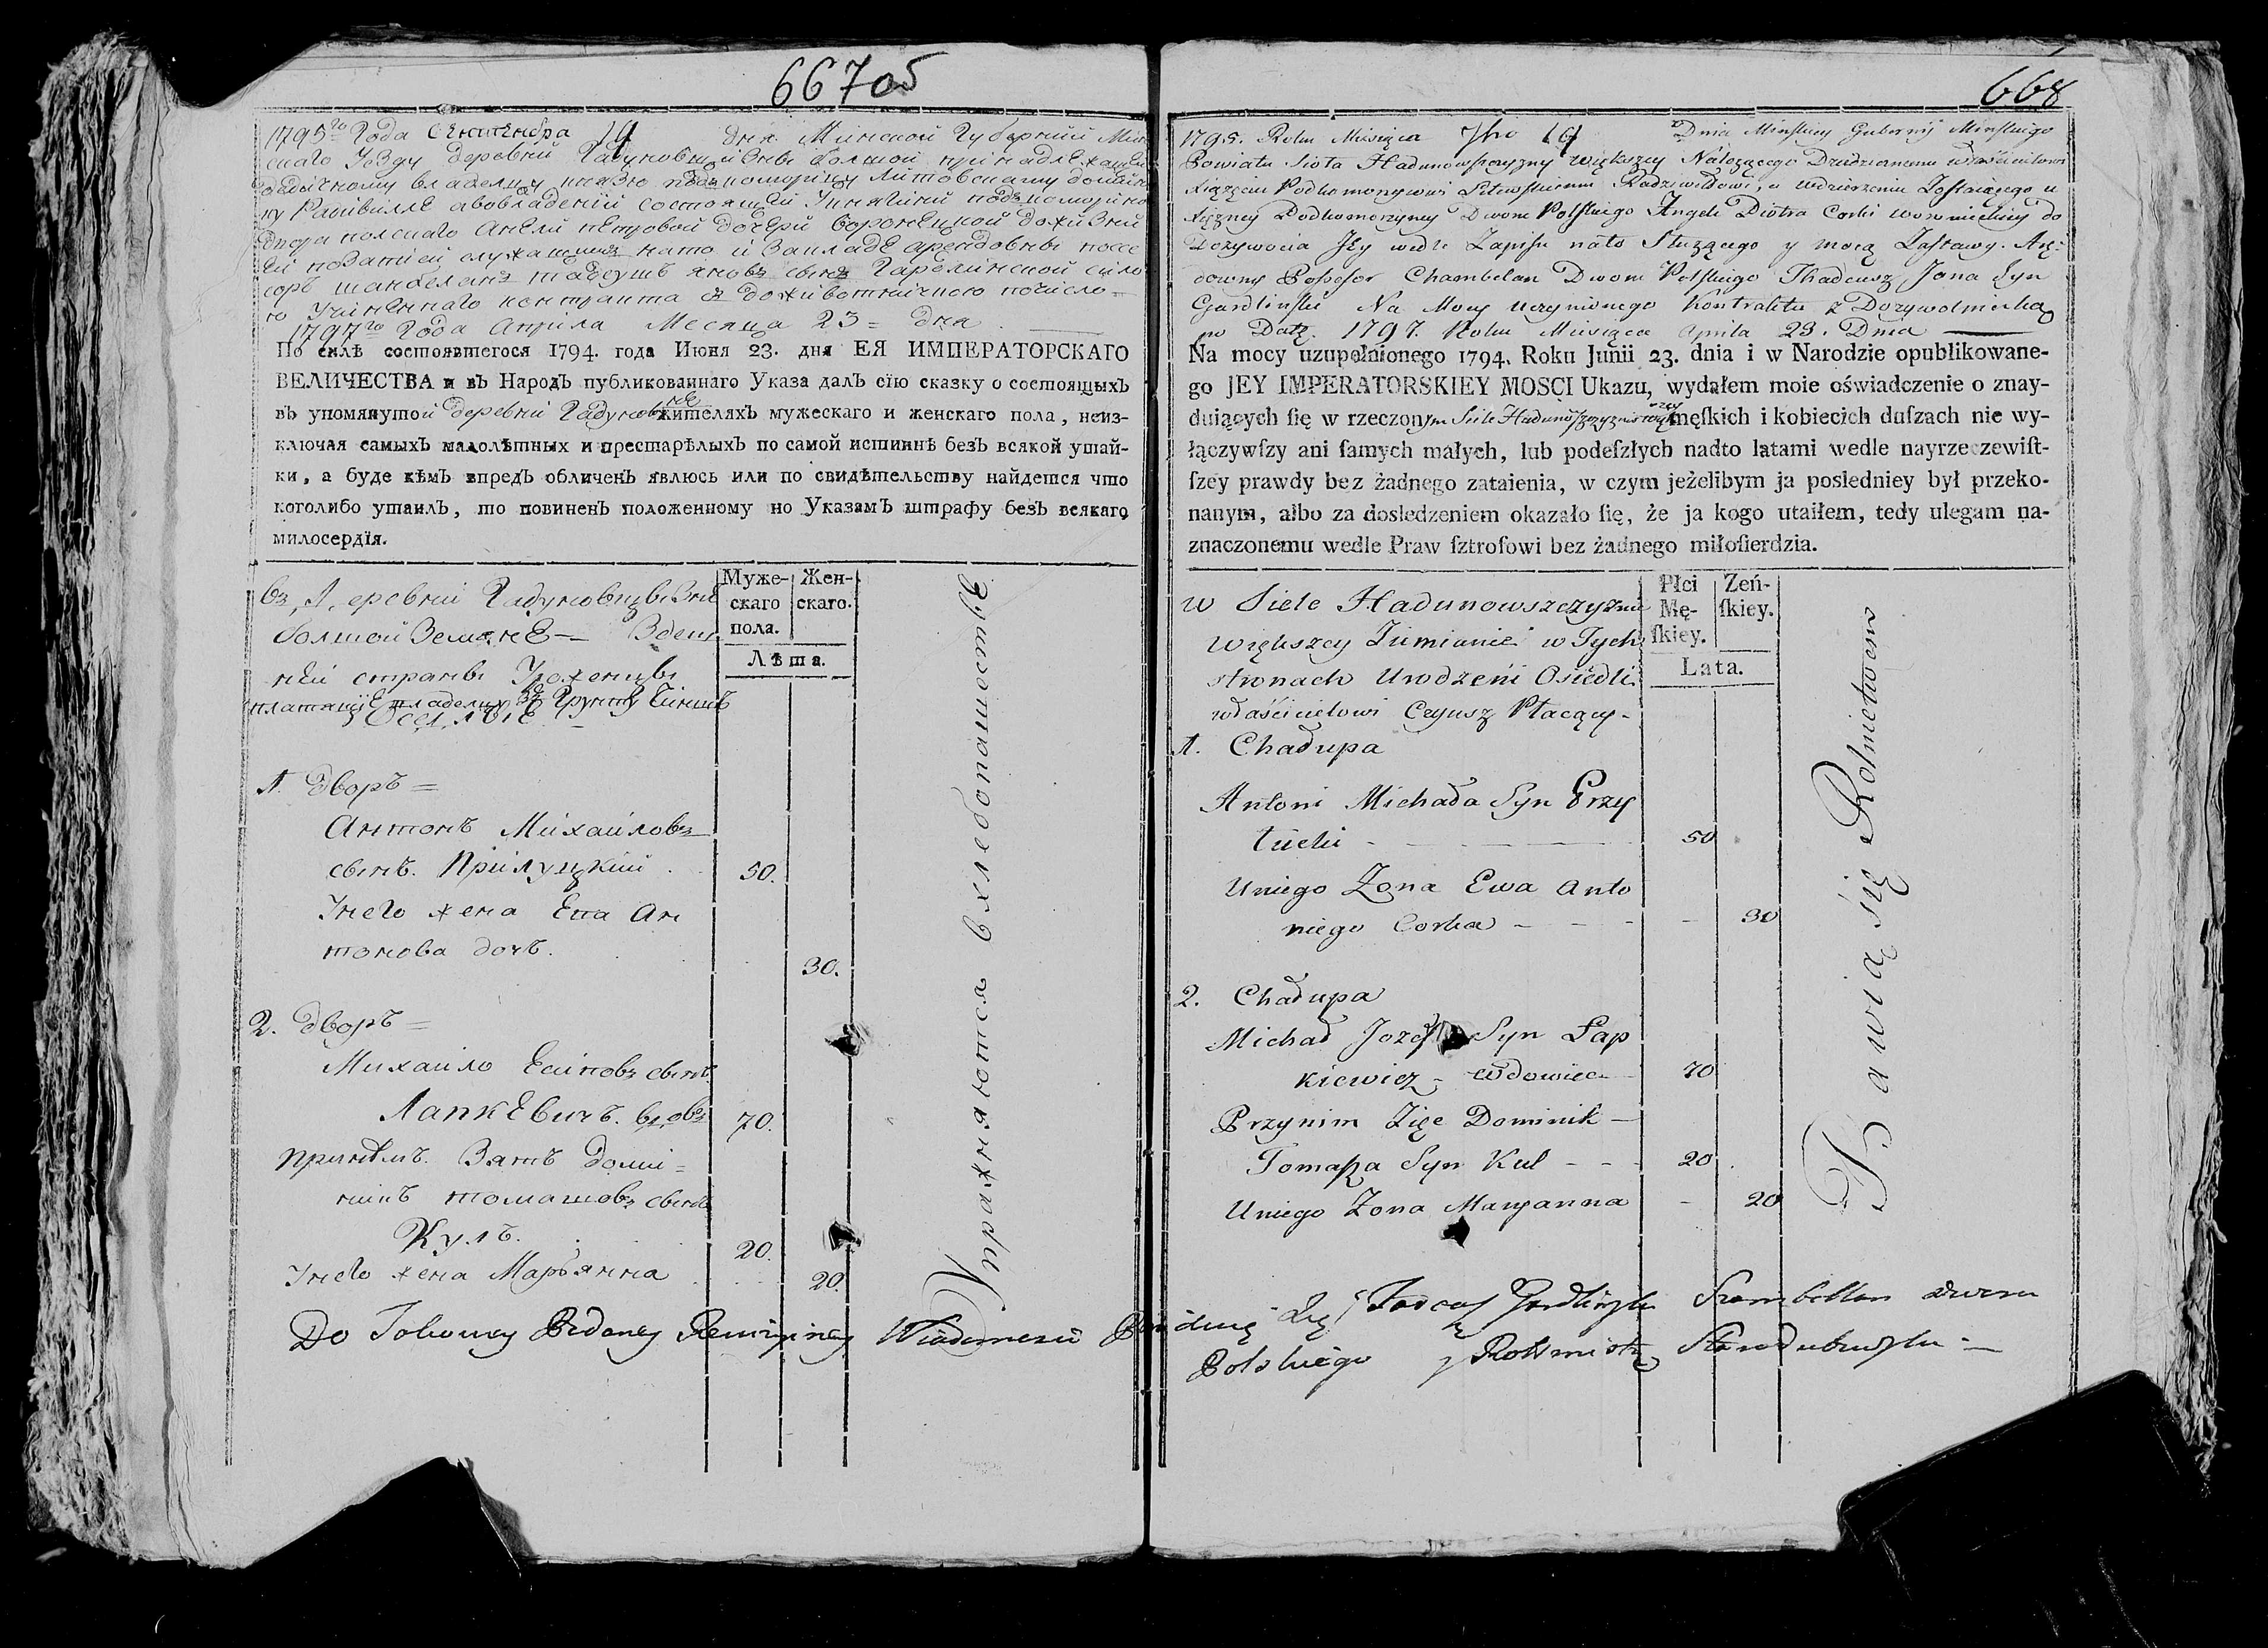 667об
1795го Года Сентября 14 дня Минской Губернии Мин
скаго Уезду деревни Гадуновщизны болшой принадлежащей
владелцу князю подкоморию Литовскому Домини
ку Радивилле авовладении состоящей
Двора полскаго Анели петровой дочери Воронецкой
ей позаписи служащий на то и Взакладе арендовны поссе
соръ шанбеланъ тадеушъ яновъ сынъ Гародлинской сило
ю Учиненнаго контракта з доживотничкою почисло=
1797го Года Априла Месяца 23= дня
По силѣ состоявшегося 1794. года Июня 23. дня ЕЯ ИМПЕРАТОРСКАГО
ВЕЛИЧЕСТВА и въ Народъ публикованнаго Указа далъ сїю сказку о состоящыхъ
въ упомянутой деревни Гадунов жителяхъ мужескаго и женскаго пола, неиз-
ключая самыхъ малолѣтных и престарѣлыхъ по самой истиннѣ безъ всякой утай-
ки, а буде кѣмъ впредъ обличенъ явлюсь или по свидѣтельству найдется что
коголибо утаилъ, то повиненъ положенному по Указамъ штрафу безъ всякаго
милосердїя.
Муже-
скаго
пола.
Жен-
скаго.
Лѣта.
въ деревни Гадуновщизне
болшой Земяне — Здеш
ней страны Уроженцы
платящие владелцу з Грунту Чиншъ
Оселые
1. дворъ =
Антонъ Михаиловъ
сынъ. Прилуцкий 50.
Унего жена Ева Ан
тонова дочъ. 30.
2. дворъ =
Михаило Есиповъ сынъ
Лапкевичъ. вдовъ 70.
принемъ. Зять Доми=
никъ томашовъ сынъ
Кулъ. 20.
Унего жена Марьянна 20.
Упражняются вхлебопашестве
Do Takowey Podaney Rewizyiney Wiadomosci
668
1795. Roku Miesiąca 7bra 14 Dnia Minskiey Gubernij Minskiego
Powiatu Sioła Hadunowszczyzny większey Należącego Dziedzicznemu właścicielowi
Xiążęciu Podkomorzemu Litewskiemu Radziwiłłowi, w udzierżeniu Zostaiącego u
Xiężney Podkomorzyney Dworu Polskiego Angeli Piotra Corki woronieckiey do
Dożywocia Jey wedle Zapisu nato Służącego y mocą Zastawy. Arę-
downy Possesor Chambelan Dworu Polskiego Thadeusz Jana Syn
Gardliński Na Mocy uczynionego Kontraktu z Dożywotniczką
po Datę. 1797. Roku Miesiąca Aprila 23. Dnia
Na mocy uzupełnionego 1794. Roku Junii 23. dnia i w Narodzie opublikowane-
go JEY IMPERATORSKIEY MOSCI Ukazu, wydałem moie oświadczenie o znay-
duiących ſię w rzeczonym Siele Hadunowszczyznie męſkich i kobiecich duſzach nie wy-
łączywſzy ani ſamych małych, lub podeſzłych nadto latami wedle nayrzeczewiſt-
ſzey prawdy bez żadnego zataienia, w czym jeżelibym ja posledniey był przeko-
nanym, albo za dosledzeniem okazało ſię, że ja kogo utaiłem, tedy ulegam na-
znaczonemu wedle Praw ſztrofowi bez żadnego miłoſierdzia.
Płci
Mę-
ſkiey.
Zeń-
ſkiey.
Lata.
w Siele Hadunowszczyznie
większey Ziemianie w Tych
stronach Urodzeni Osiedli
właścicielowi Czynsz Płacący-
1. Chałupa
Antoni Michała Syn Przy
łucki 50
Uniego Żona Ewa Anto
niego Corka 30
2. Chałupa
Michał Jozefa Syn Łap
kiewicz wdowiec 70
Przynim Zięć Dominik
Tomasza Syn Kul 20
Uniego Żona Maryanna 20
Bawią się Rolnictwem
Tadeusz Gardliński Szambellan dworu
Polskiego y Rotmistrz Starodubowski